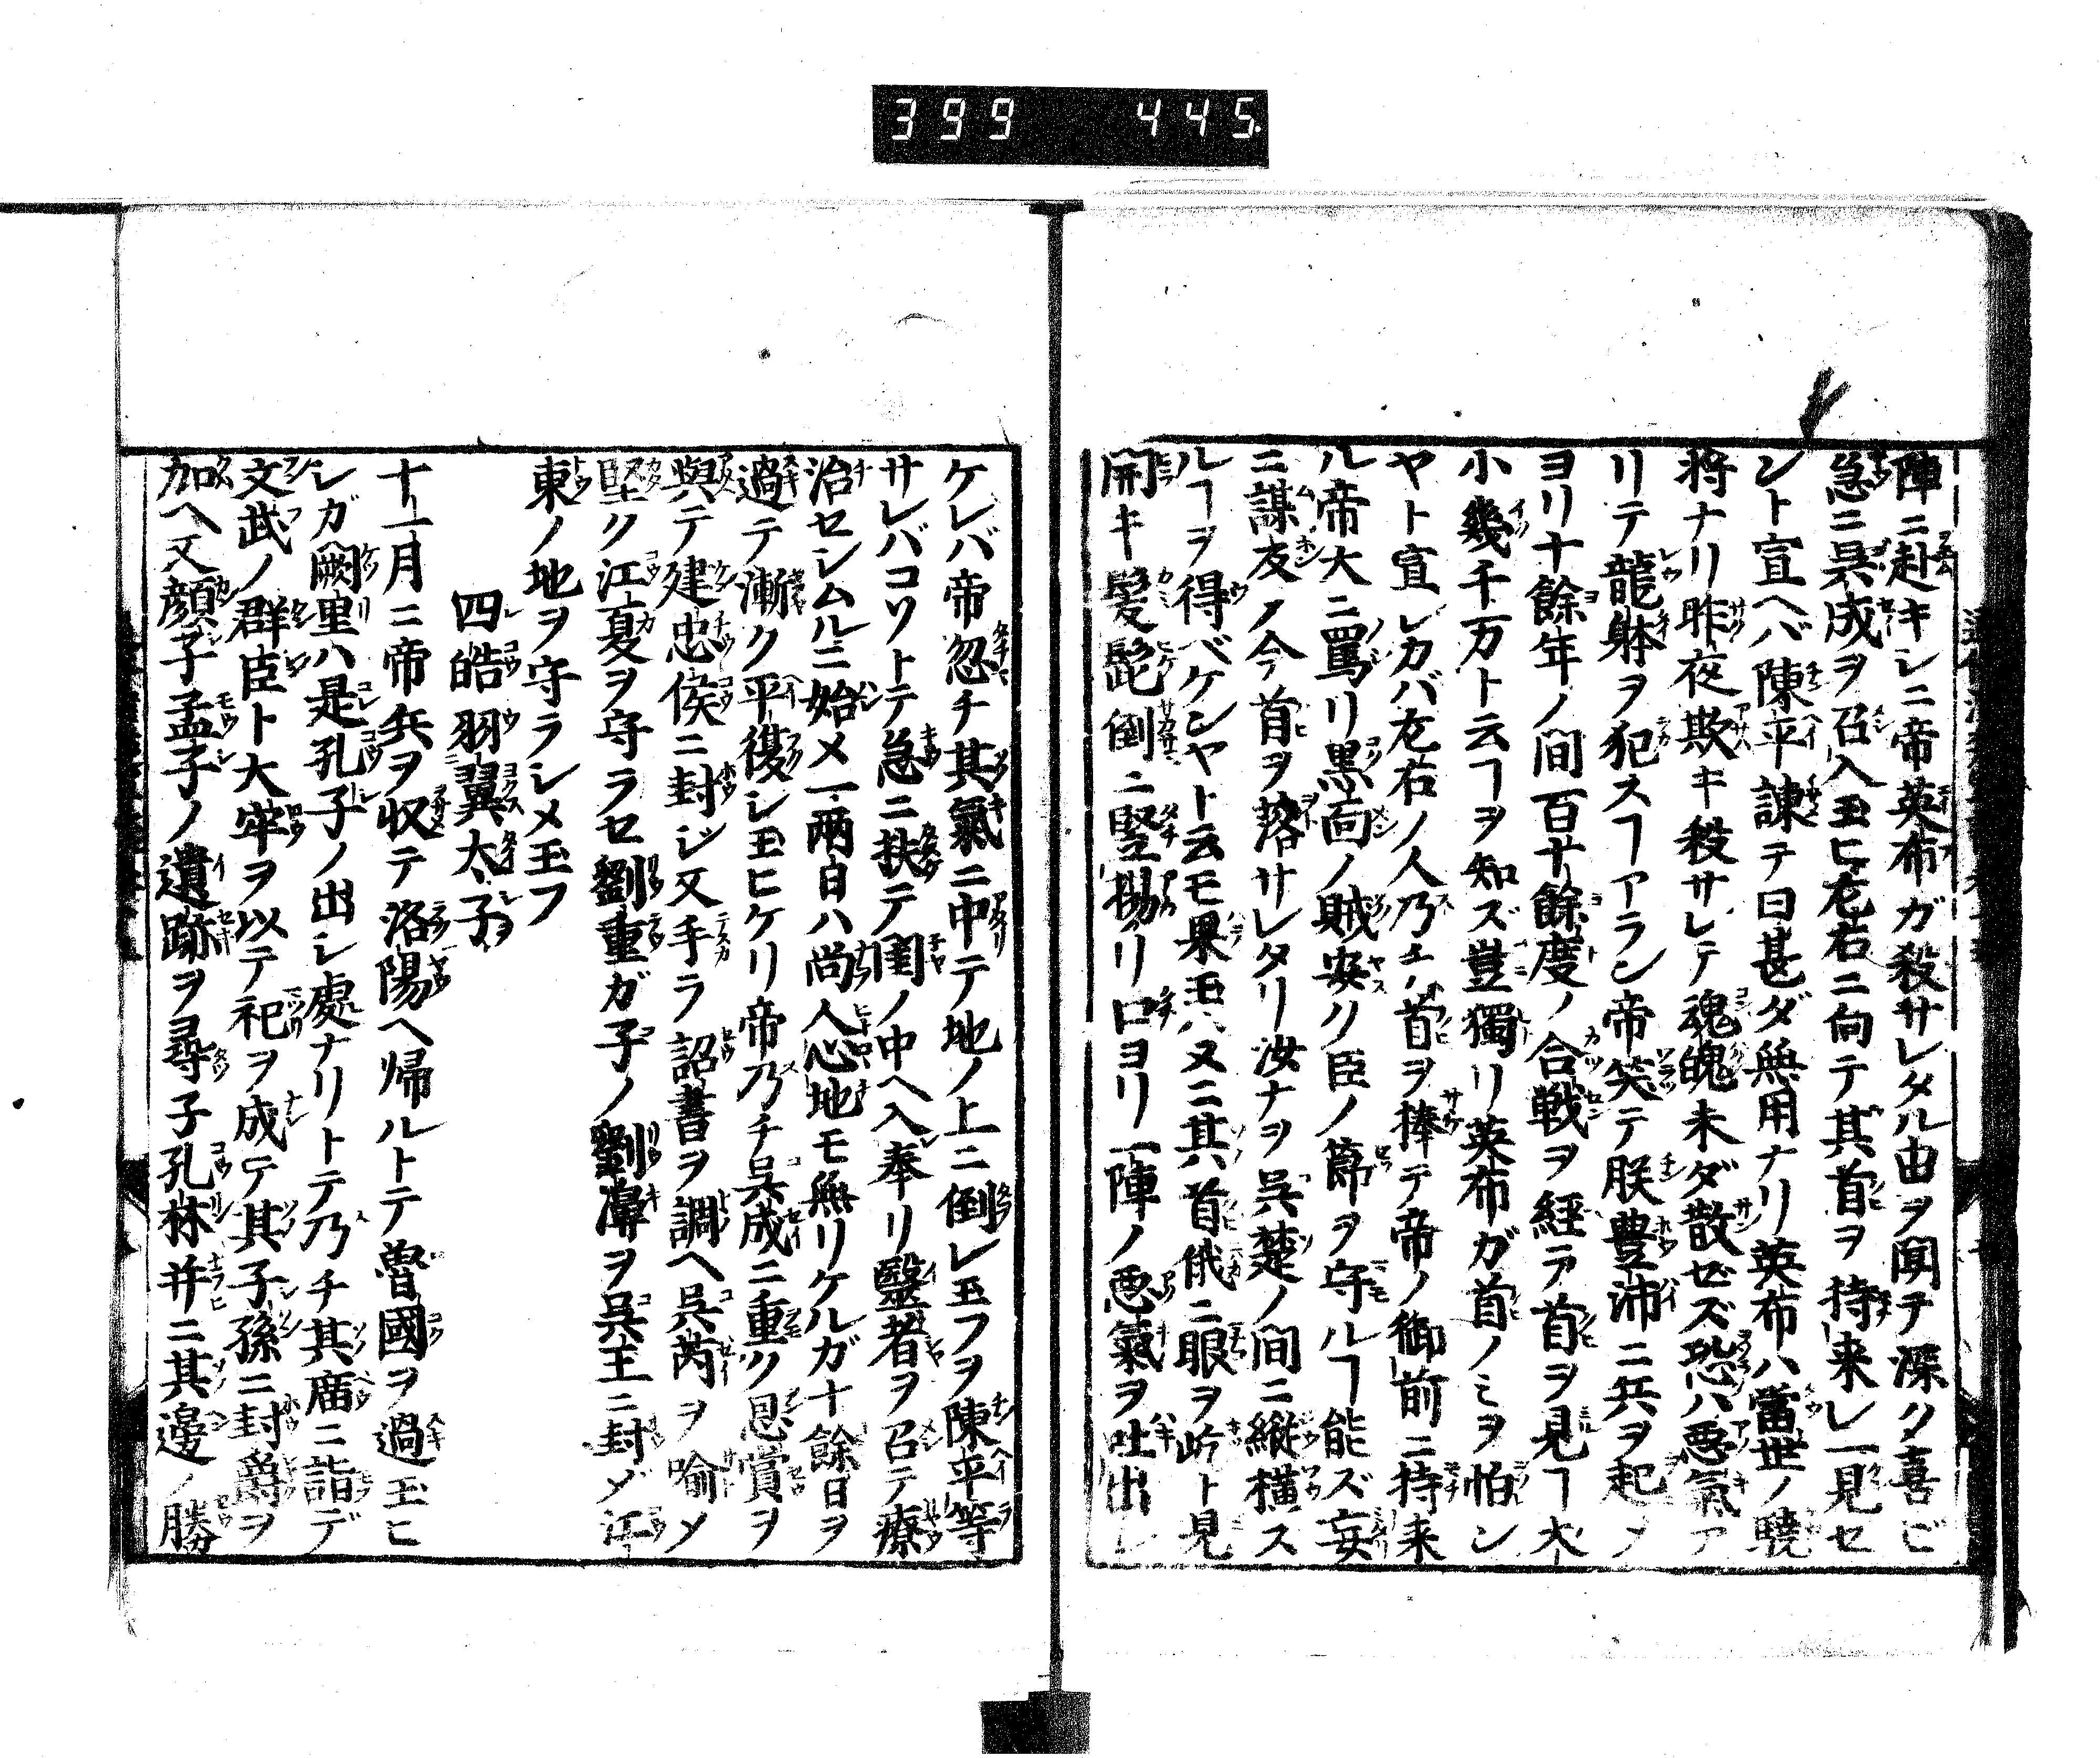 399 445
陣ニ赴キシニ帝英布ガ殺サレタル由ヲ聞テ深ク喜ビ
急ニ呉成ヲ召入玉ヒ左右ニ向テ其首ヲ持来レ一見セ
ント宣ヘバ陳平諫テ曰甚ダ無用ナリ英布ハ當世ノ驍
将ナリ昨夜欺キ殺サレテ魂魄未ダ散ゼズ恐ハ悪氣ア
リテ龍躰ヲ犯スヿアラン帝笑テ朕豊沛ニ兵ヲ起ノ
ヨリ十餘年ノ間百十餘度ノ合戦ヲ経テ首ヲ見ヿ大
小幾千万ト云ヿヲ知ズ豈獨リ英布ガ首ノミヲ怕ン
ヤト宣レカバ左右ノ人乃チ首ヲ捧テ帝ノ御前ニ持来
ル帝大ニ罵リ黒面ノ賊安ク臣ノ節ヲ守ルヿ能ズ妄
ニ謀反ノ今首ヲ落サレタリ汝ナヲ呉楚ノ間ニ縦横ス
ルヿヲ得ベケンヤト云モ果玉ハヌニ其首俄ニ眼ヲ屹ト見
開キ髪髭倒ニ竪拗リ口ヨリ一陣ノ悪氣ヲ吐出シ
ケレバ帝忽チ其氣ニ中テ地ノ上ニ倒レ玉フヲ陳平等
サレバコソトテ急ニ扶テ閨ノ中ヘ入奉リ醫者ヲ召テ療
治セシムルニ始メ一兩日ハ尚人心地モ無リケルガ十餘日ヲ
過テ漸ク平復シ玉ヒケリ帝乃チ呉成ニ重ク恩賞ヲ
與テ建忠侯ニ封ジ又手ラ詔書ヲ調ヘ呉芮ヲ喩ノ
堅ク江夏ヲ守ラセ劉重ガ子ノ劉濞ヲ呉王ニ封ジ江
東ノ地ヲ守ラシメ玉フ
四皓羽翼太子
十一月ニ帝兵ヲ収テ洛陽ヘ帰ルトテ魯國ヲ過玉ヒ
シガ闕里ハ是孔子ノ出シ處ナリトテ乃チ其廟ニ詣デ
文武ノ群臣ト大牢ヲ以テ祀ヲ成テ其子孫ニ封爵ヲ
加ヘ又顔子孟子ノ遺跡ヲ尋子孔林并ニ其邊ノ勝